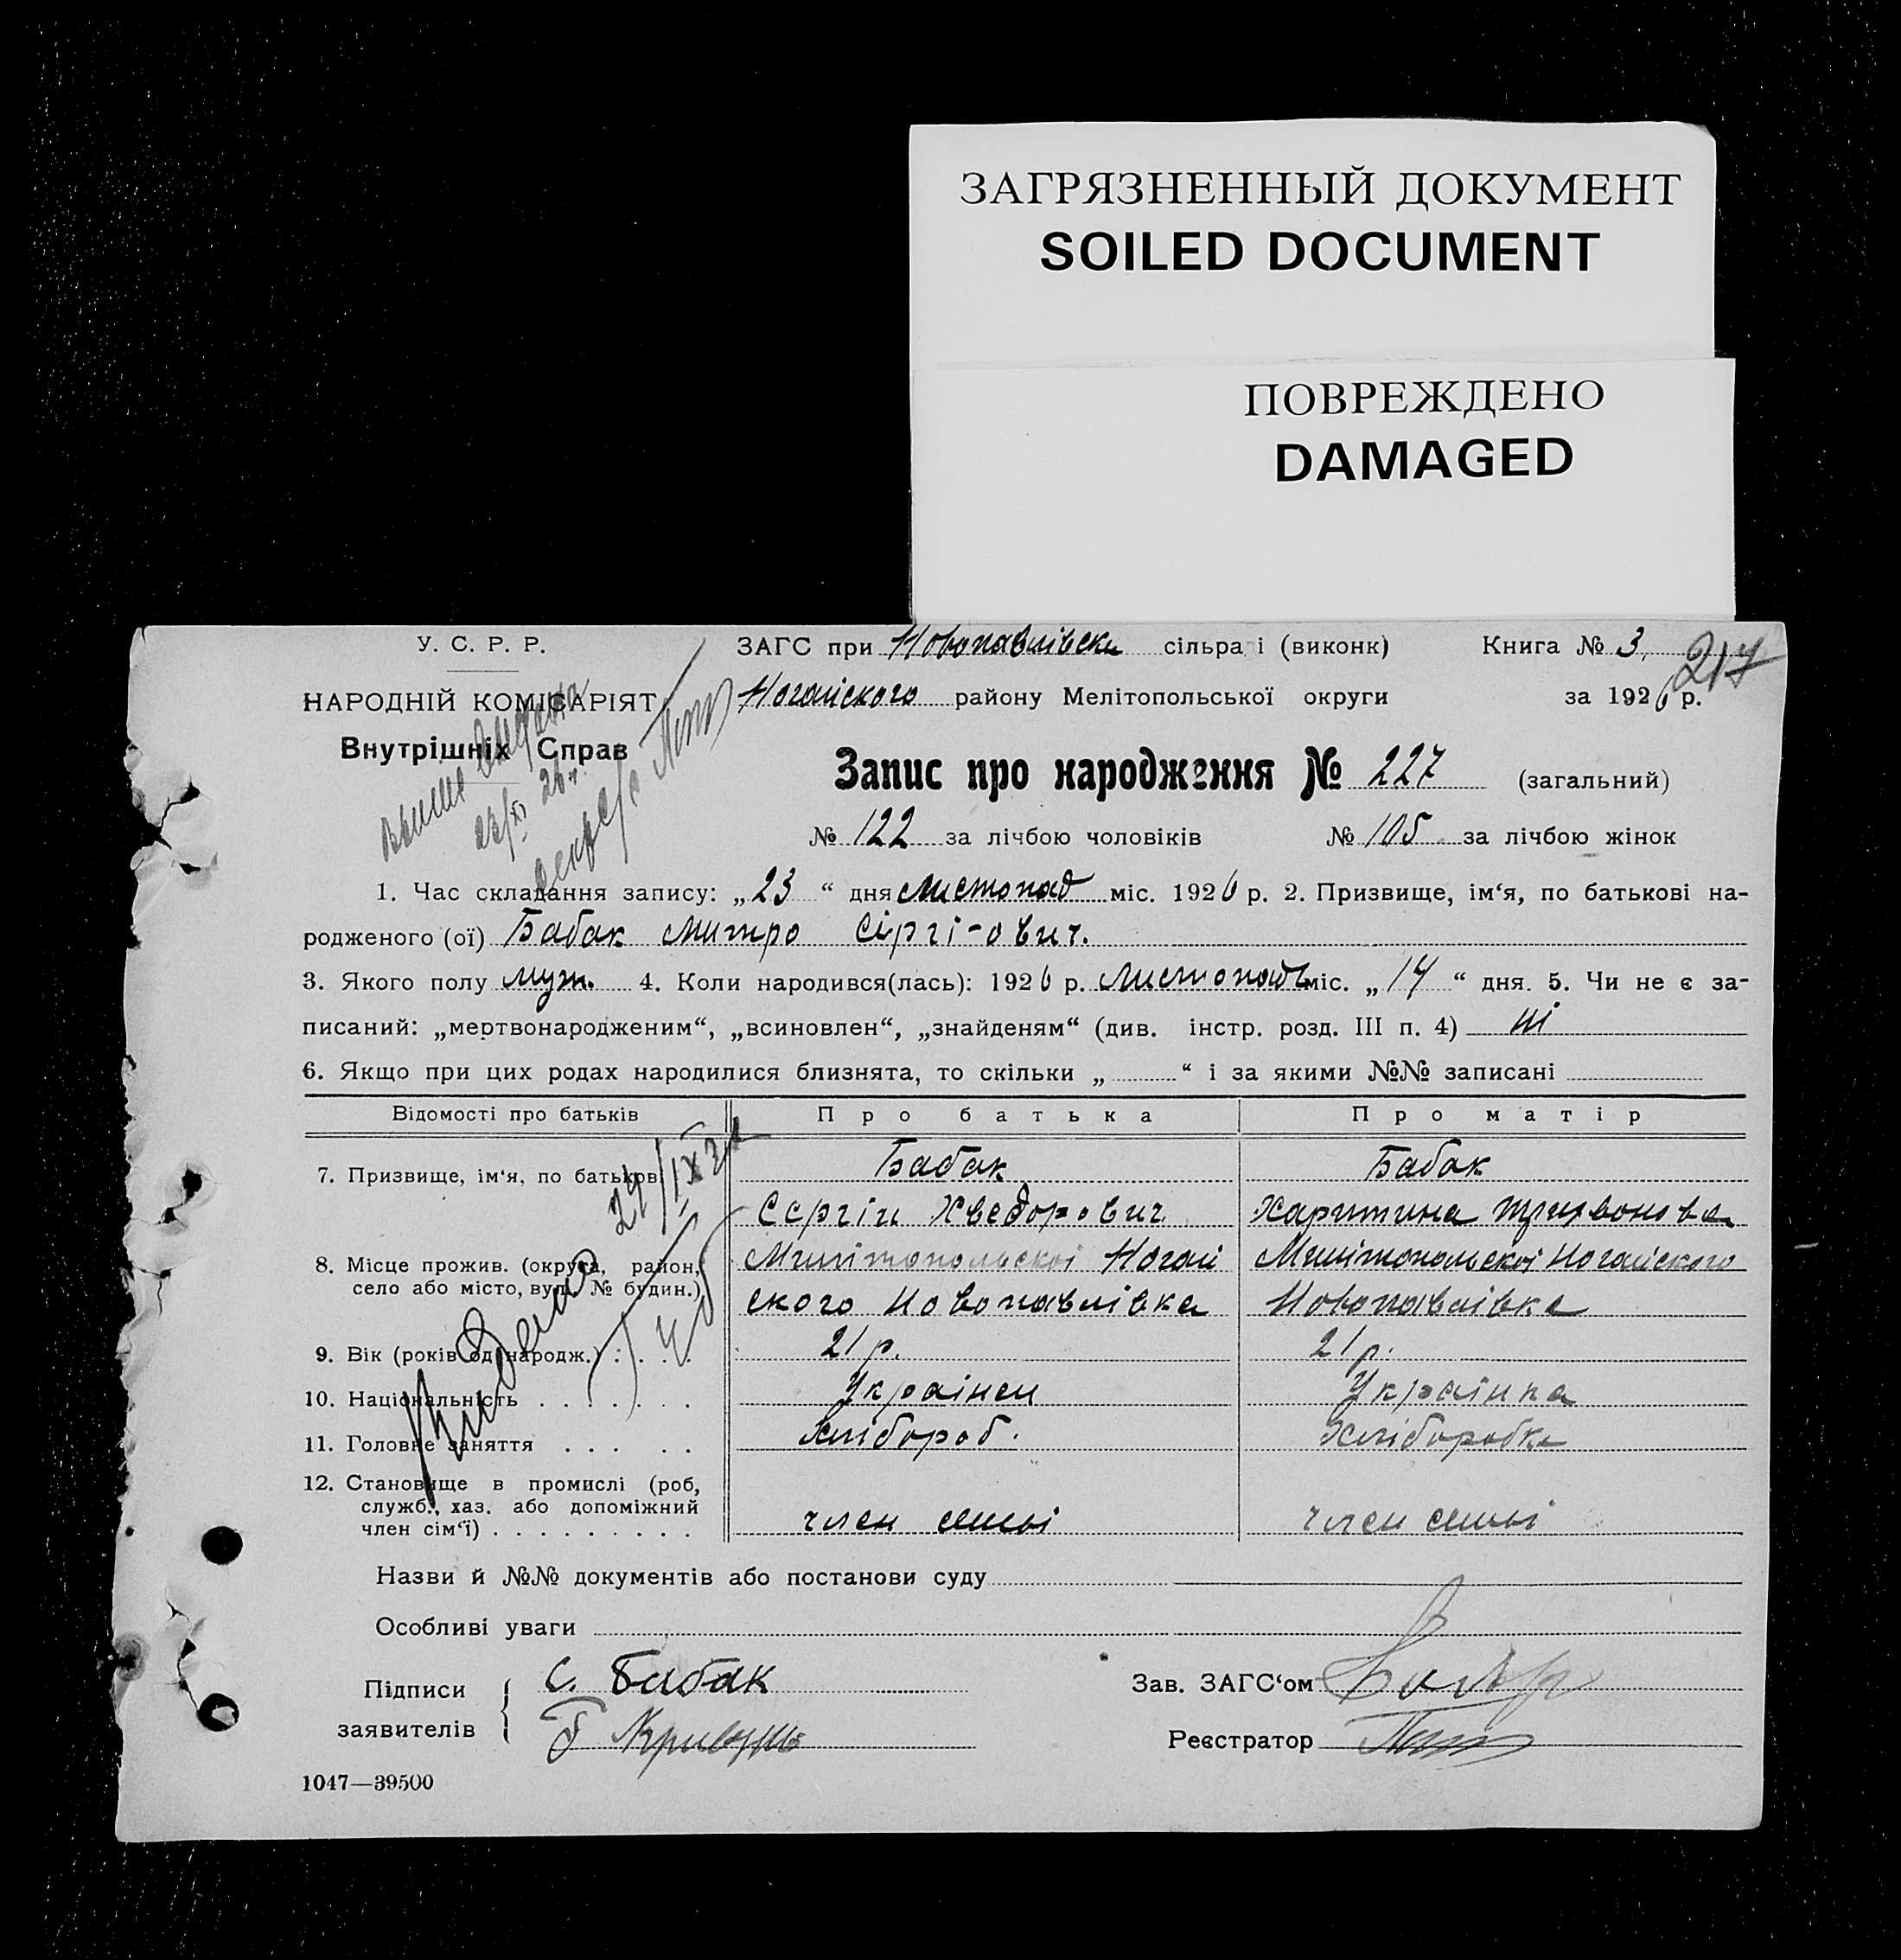 ЗАГРЯЗНЕННЫЙ ДОКУМЕНТ
SOILED DOCUMENT
ПОВРЕЖДЕНО
DAMAGED
У. С. Р. Р.
НАРОДНІЙ КОМІСАРІЯТ
Внутрішніх Справ
ЗАГС при Новопавлівски сільра і (виконк) Книга № 3, 217
Ногайского району Мелітопольської округи за 1926 р.
Запис про народження № 227 (загальний)
№ 122 за лічбою чоловіків № 105 за лічбою жінок
1. Час складання запису: „23“ дня листопад міс. 1926 р. 2. Призвище, ім‘я, по батькові на-
родженого (ої) Бабак Митро Сіргі-ович.
3. Якого полу муж. 4. Коли народився(лась): 1926 р. Листопада міс. „14“ дня. 5. Чи не є за-
писаний: „мертвонародженим“, „всиновлен“, „знайденям“ (див. інстр. розд. III п. 4) ні
6. Якщо при цих родах народилися близнята, то скільки „ “ і за якими №№ записані
Відомості про батьків Про батька Про матір
7. Призвище, ім‘я, по батькові Бабак Бабак
Сєргій Хведорович Харитина Трихвоновна
8. Місце прожив. (округа, район, село або місто, вул. № будин.) Милітопольскоі Ногай Милітопольскоі Ногайского
ского Новопавлівка Новопавлівка
9. Вік (років од народж.) 21 р. 21 р.
10. Національність Украінец Украінка
11. Головне заняття Хлібороб. Хліборобка
12. Становище в промислі (роб,
служб., хаз. або допоміжний
член сім‘ї) член семьі член семьі
Назви й №№ документів або постанови суду
Особливі уваги
Підписи заявителів С. Бабак
Зав. ЗАГС‘ом
Реєстратор
1047—39500